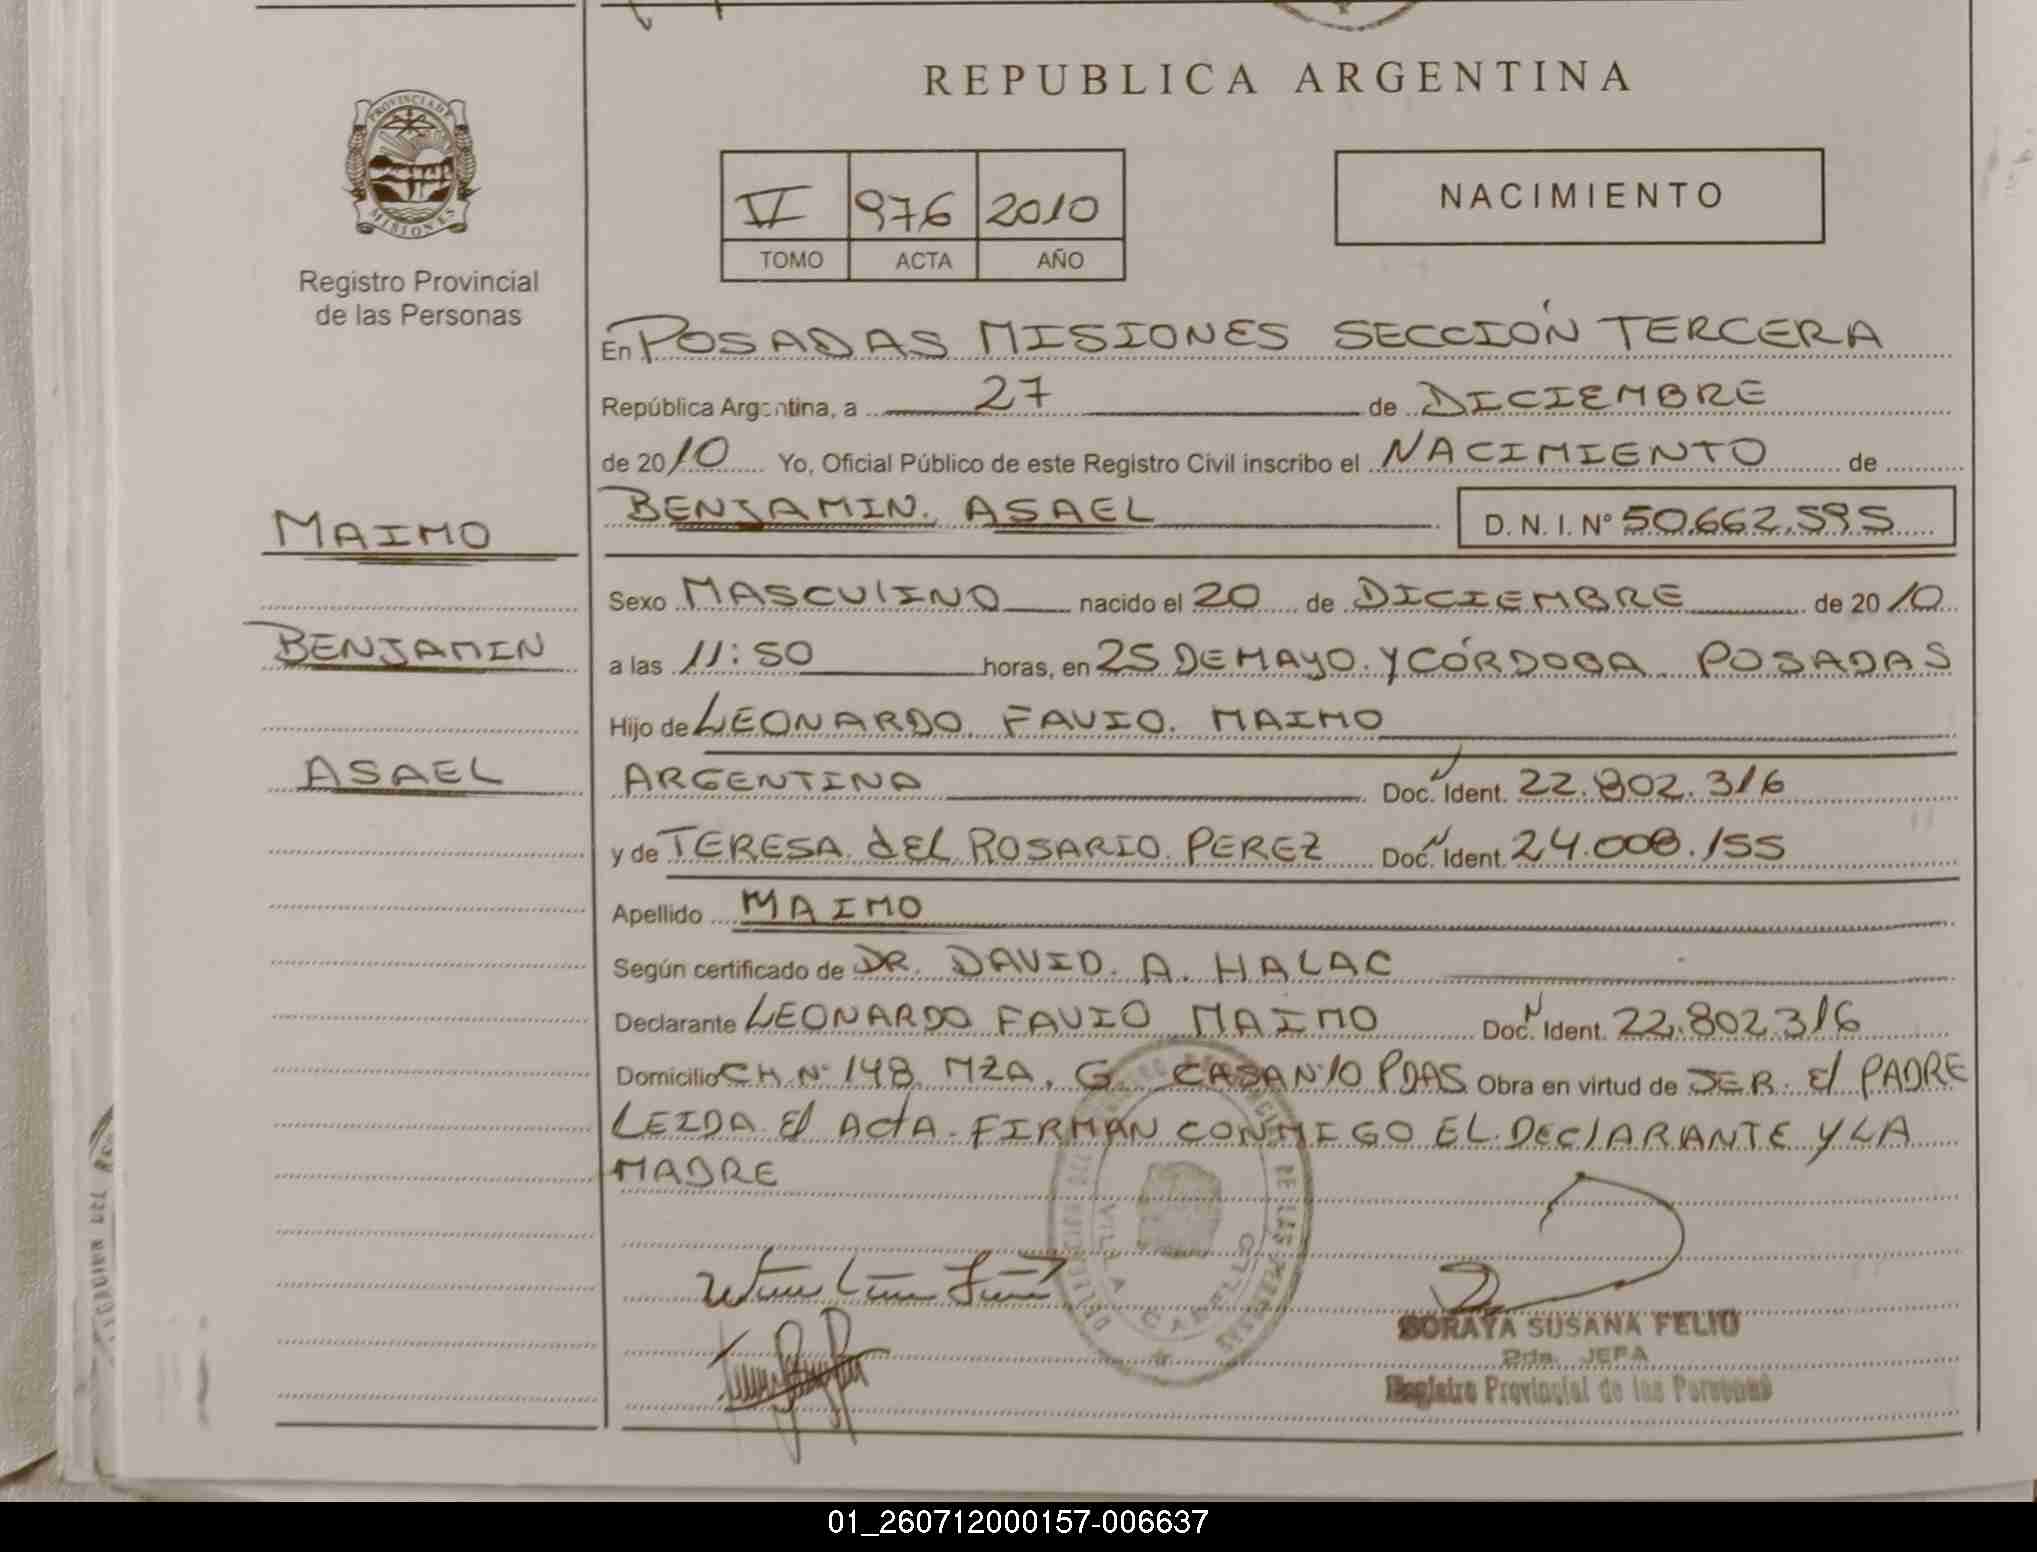 REPUBLICA ARGENTINA
PROVINCIA DE
MISIONES
Registro Provincial
de las Personas
VI 976 2010
TOMO ACTA AÑO
NACIMIENTO
En POSADAS MISIONES SECCIÓN TERCERA
República Argentina, a 27 de DICIEMBRE
de 2010 Yo, Oficial Público de este Registro Civil inscribo el NACIMIENTO de
BENJAMIN. ASAEL D. N. I. Nº 50.662.595
MAIMO
Sexo MASCULINO nacido el 20 de DICIEMBRE de 2010
BENJAMIN
a las 11:50 horas, en 25 DE MAYO. Y CÓRDOBA POSADAS
Hijo de LEONARDO FAVIO. MAIMO
ASAEL
ARGENTINA Doc. Ident. 22.802.316
y de TERESA del ROSARIO PEREZ Doc. Ident. 24.008.155
Apellido MAIMO
Según certificado de DR. DAVID. A. HALAC
Declarante LEONARDO FAVIO MAIMO Doc. Ident. 22.802316
Domicilio CH Nº 148 MZA. G CASA Nº 10 PDAS Obra en virtud de SER. El PADRE
LEIDA El ActA. FIRMAN CONMIGO EL DEClARANTE Y LA
MADRE
VILLA CABELLO
SORAYA SUSANA FELIU
2da. JEFA
Registro Provincial de las Personas
01_260712000157-006637